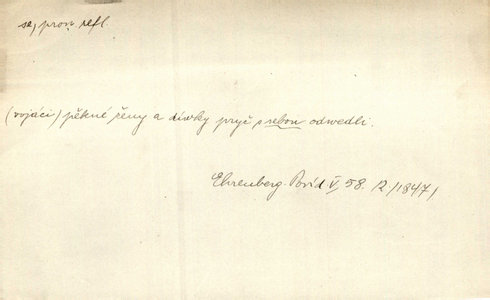 se, pron. refl.
(vojáci) pěkné ženy a díwky pryč s sebou odwedli.
Ehrenberg. Povíd V, 58. /2/1847/